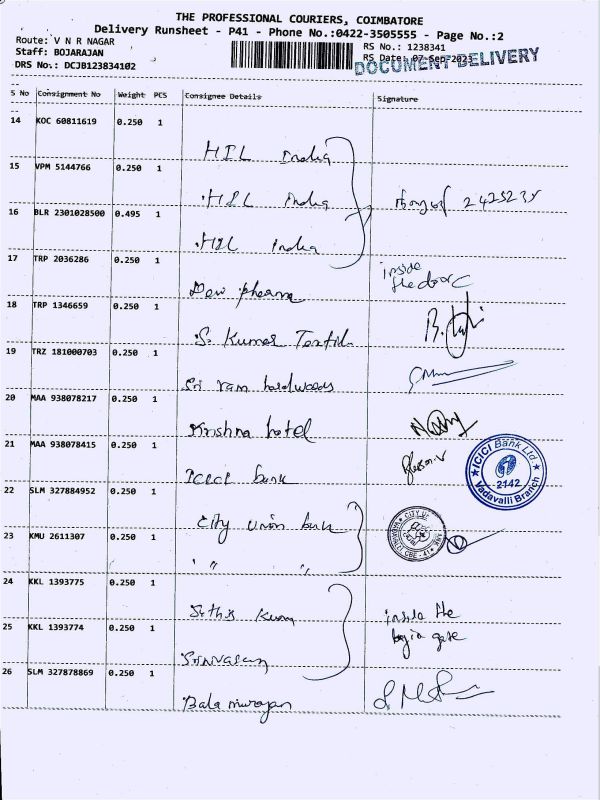 THE PROFESSIONAL COURIERS, COIMBATORE
Delivery Runsheet - P41 - Phone No.:0422-3505555 - Page No.:2
Route: V N R NAGAR
Staff: BOJARAJAN
DRS No.: DCJB123834102
RS No.: 1238341
RS Date: 07-Sep-2023
DOCUMENT DELIVERY
S No Consignment No Weight PCS Consignee Details Signature
14 KOC 60811619 0.250 1
HIL India
15 VPM 5144766 0.250 1
HIL India 2425235
16 BLR 2301028500 0.495 1
HIL India
17 TRP 2036286 0.250 1
inside
the door
Dew pharma
18 TRP 1346659 0.250 1
S. Kumar Textil
19 TRZ 181000703 0.250 1
Sri ram hardwoods
20 MAA 938078217 0.250 1
Krishna hotel
21 MAA 938078415 0.250 1
ICICI bank
ICICI Bank Ltd
2142
Vadavalli Branch
22 SLM 327884952 0.250 1
City union bank
23 KMU 2611307 0.250 1
" "
24 KKL 1393775 0.250 1
Kumar
inside the
gate
25 KKL 1393774 0.250 1
Srinivasan
26 SLM 327878869 0.250 1
Bala murugan